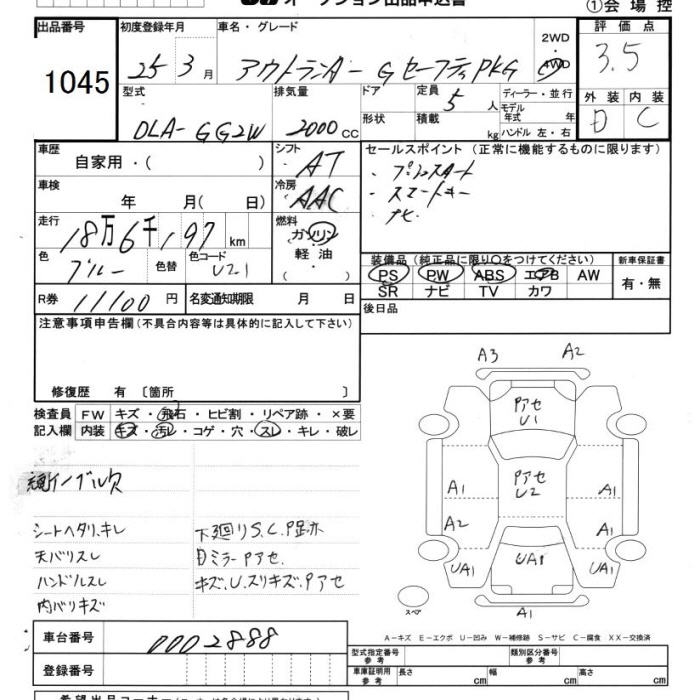 オークション出品申込書
①会場控
出品番号
1045
初度登録年月
25 3月
車名・グレード
アウトランダー GセーフティPKG
2WD
4WD
評価点
3.5
型式
DLA- GG2W
排気量
2000cc
ドア
形状
定員
5人
積載
kg
ディーラー・並行
モデル年式 年
ハンドル 左・右
外装 内装
D C
車歴
自家用・( )
シフト
AT
セールスポイント(正常に機能するものに限ります)
・プッシュスタート
・スマートキー
・ナビ
車検
年 月(日)
冷房
AAC
走行
18万6千197km
燃料
ガソリン
軽油
( )
色
ブルー
色替
色コード
U21
装備品(純正品に限り○をつけてください)
PS PW ABS エアB AW
SR ナビ TV カワ
新車保証書
有・無
R券
11100円
名変通知期限 月 日
後日品
注意事項申告欄(不具合内容等は具体的に記入して下さい)
修復歴 有〔箇所 〕
検査員記入欄
FW キズ・飛石・ヒビ割・リペア跡・×要
内装 キズ・汚レ・コゲ・穴・スレ・キレ・破レ
シートヘタリ、キレ
天バリスレ
ハンドルスレ
内バリキズ
下廻りS.C.P跡
Dミラー Pアセ.
キズ、U.スリキズ、Pアセ
A3 A2
Pアセ
U1
Pアセ
U2
A1 A1
A2 A1
UA1 UA1 UA1
スペア
A1
A-キズ E-エクボ U-凹み W-補修跡 S-サビ C-腐食 XX-交換済
車台番号
0002888
登録番号
型式指定番号
参考
類別区分番号
参考
車庫証明用
参考
長さ cm 幅 cm 高さ cm